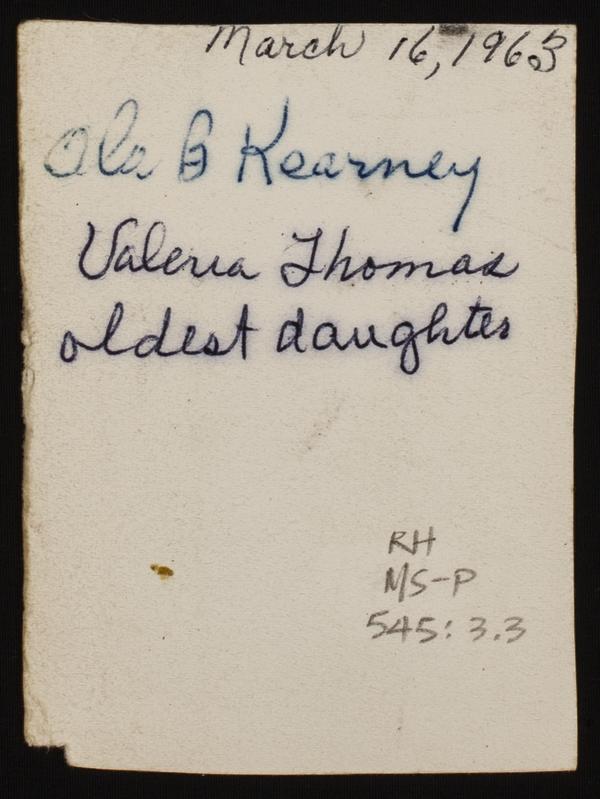 March 16, 1963
Ola B Kearney
Valeria Thomas
oldest daughter
RH
MS-P
545: 3.3